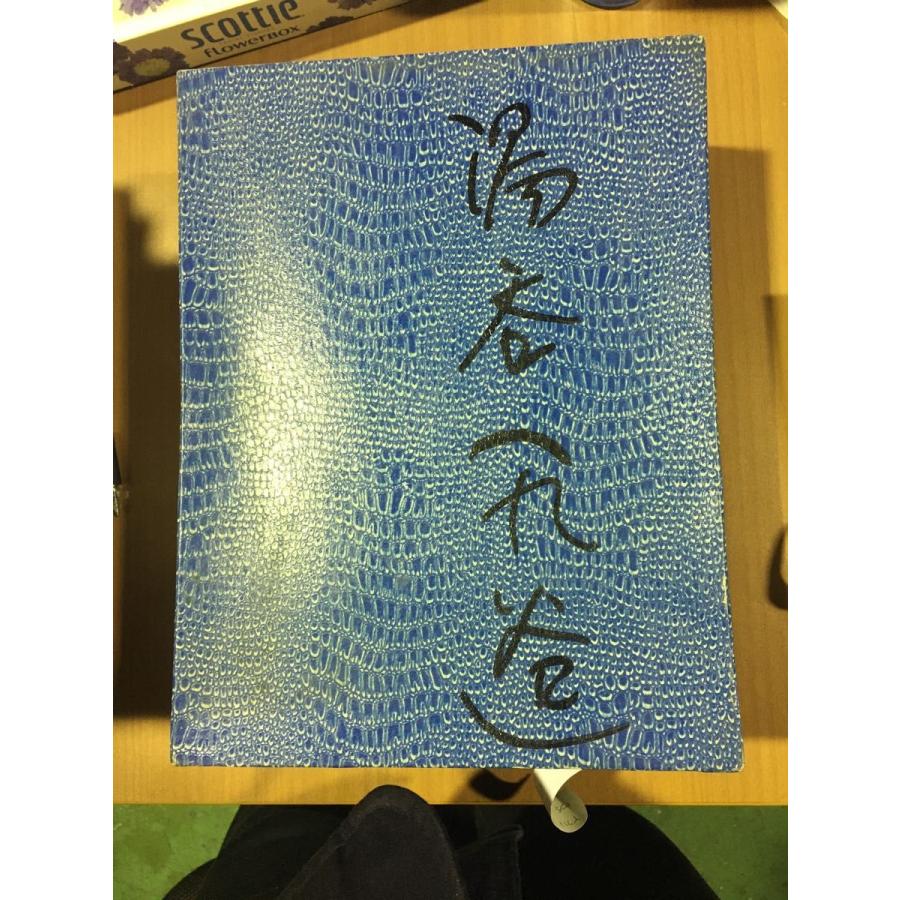 scottie
flowerBOX
湯呑(九谷)